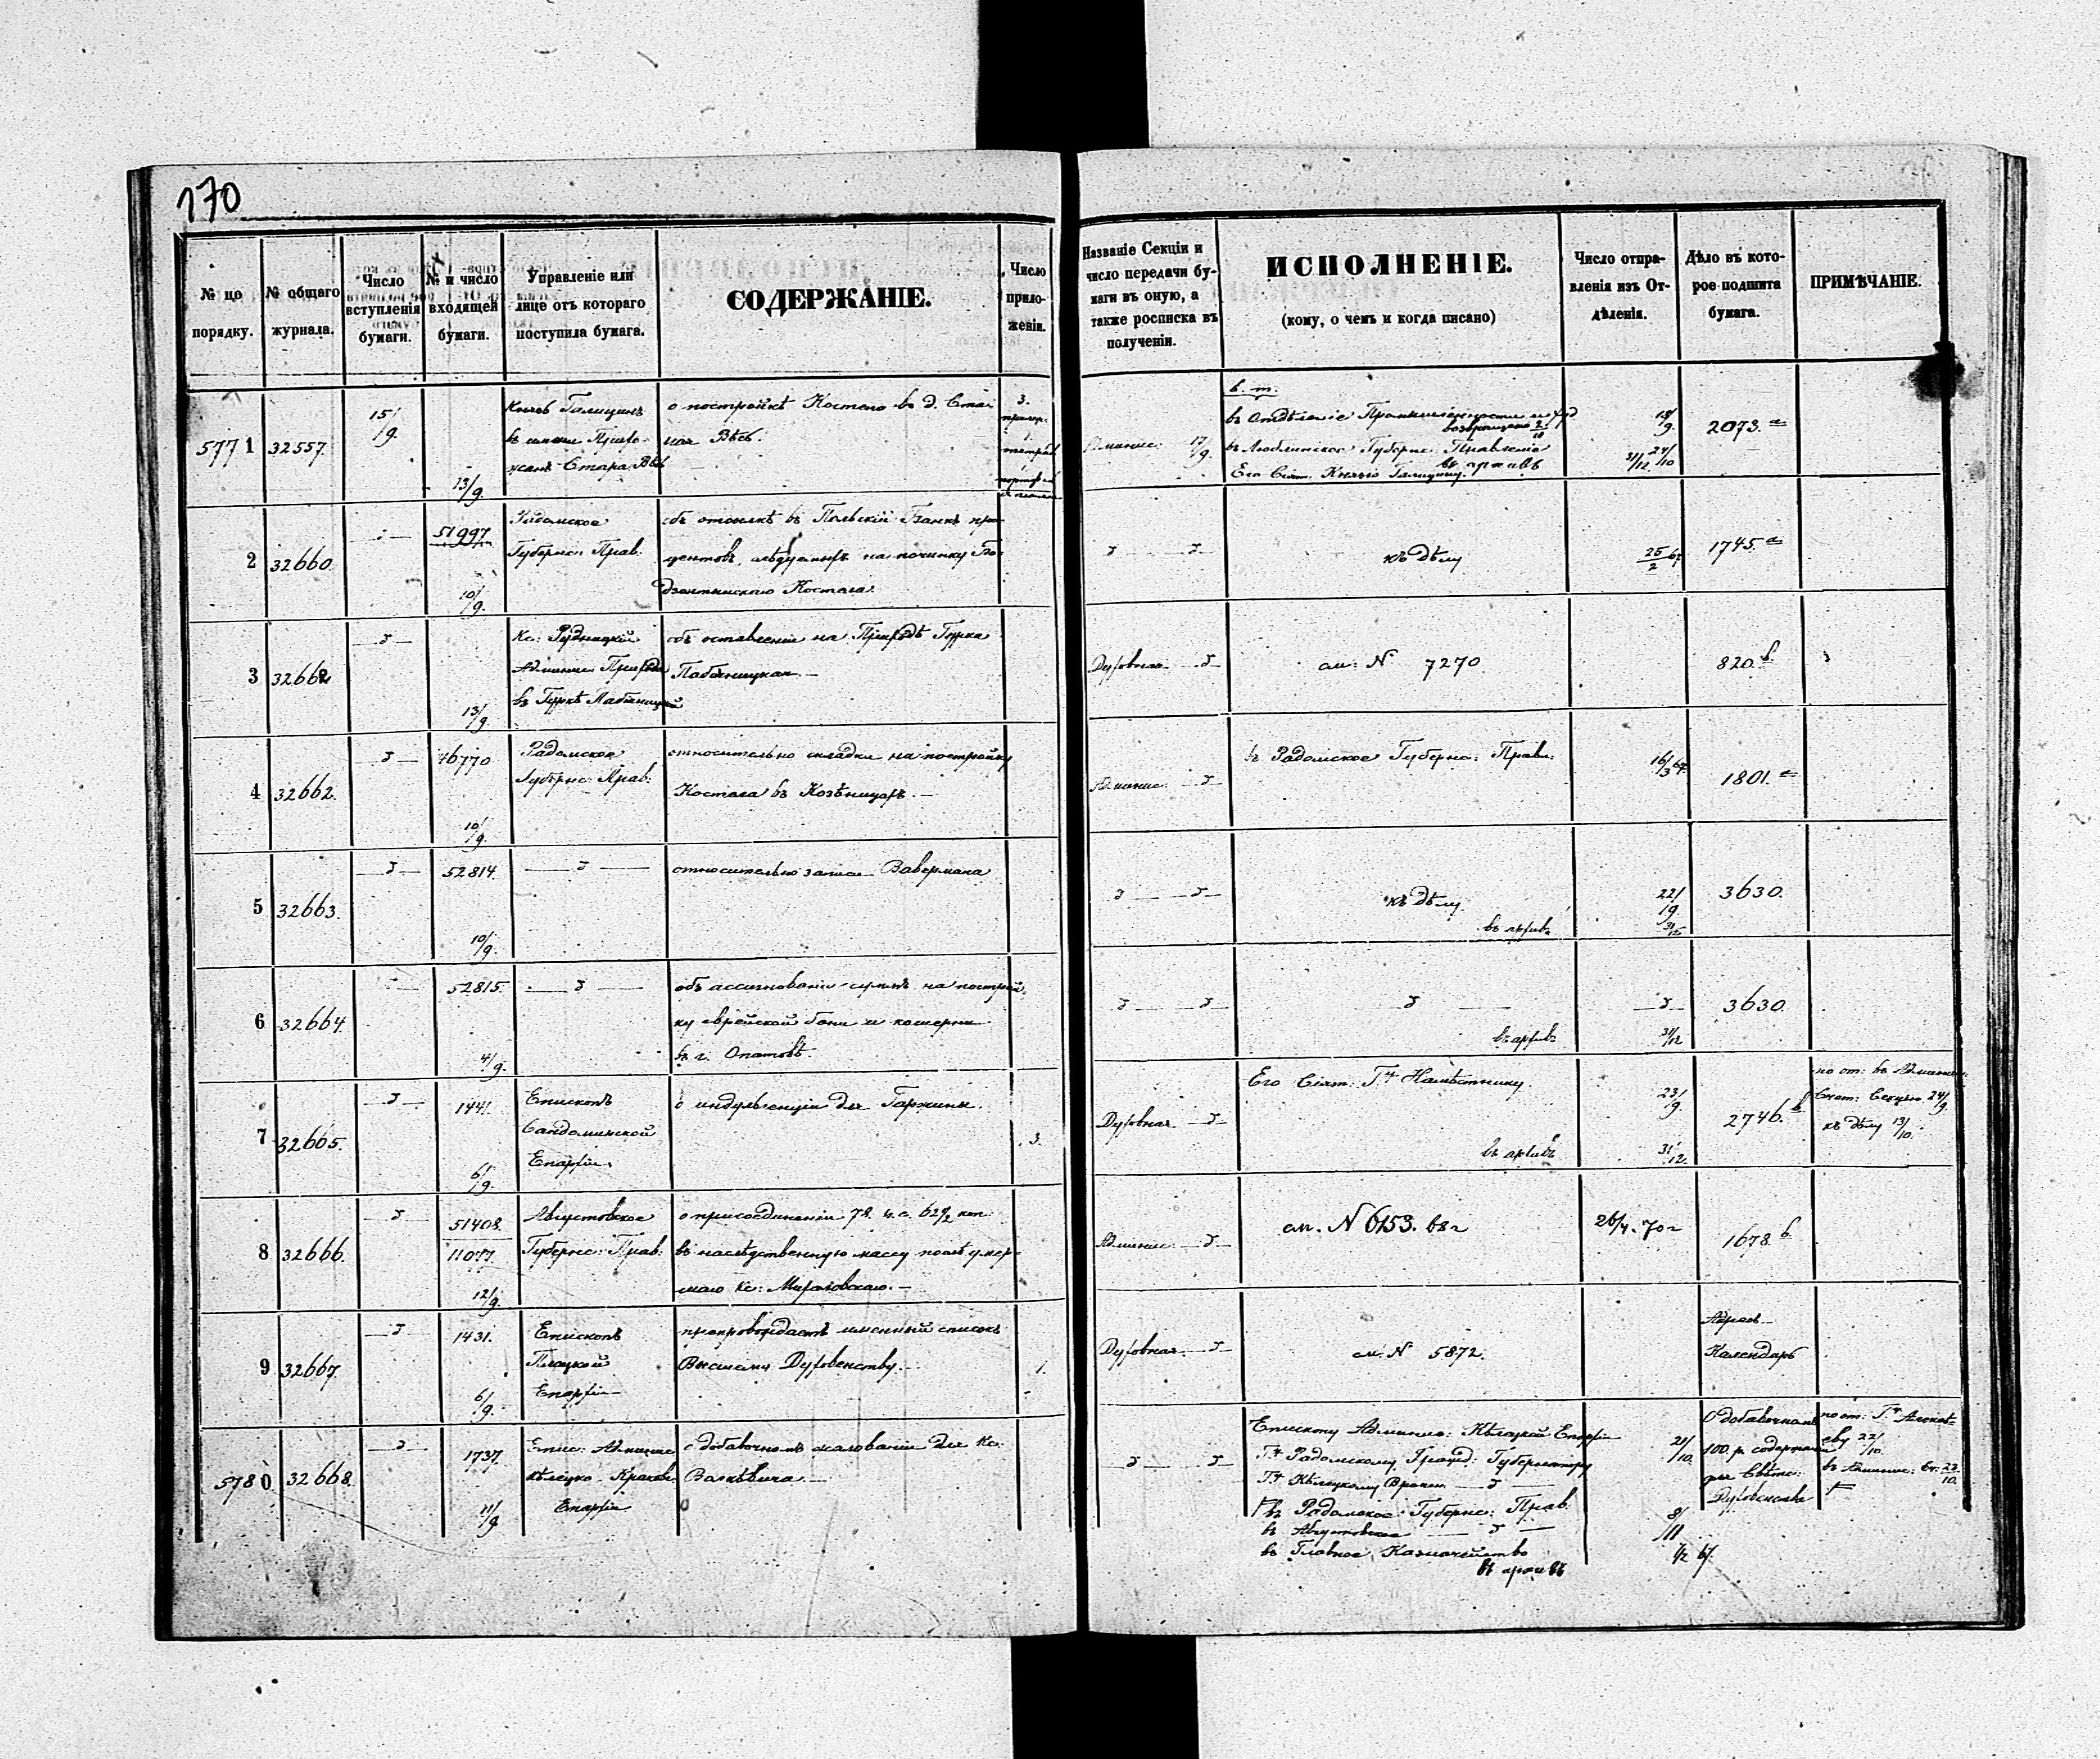 170
№ по порядку.
№ общаго журнала.
Число вступленія бумаги.
№ и число входящей бумаги.
Управленіе или лице отъ котораго поступила бумага.
СОДЕРЖАНІЕ.
Число приложеній.
Названіе Секціи и число передачи бумаги въ оную, а также росписка въ полученіи.
ИСПОЛНЕНІЕ.
(кому, о чемъ и когда писано)
Число отправленія изъ Отдѣленія.
Дѣло въ которое подшита бумага.
ПРИМѢЧАНІЕ.
5771 32557. 15/9. 13/9.
Князь Голицынъ
о постройкѣ Костела въ д. Ста-
рая Вѣсь.
3.
17/9.
въ Отдѣленіе Промышленности
возвращено 2/10
въ Люблинское Губернс. Правленіе
Его Сіят. Князю Голицыну. въ архивъ
18/9. 24/10 31/12
2073. а
2 32660. 51997 10/9.
Радомское
Губернс: Прав:
объ отсылкѣ въ Польскій Банкъ про-
центовъ, слѣдуемыхъ на починку Бо-
дзентынскаго Костела.
къ дѣлу
25/2 67.
1745. а
3 32662 13/9
Кс: Рудницкій
Админис. Прихода
въ Гуркѣ Пабяницкой
объ оставленіи на Приходѣ Гурка
Пабяницкая. —
Духовная
см: № 7270.
820. б
4 32662. 46770 10/9.
Радомское
Губернс: Прав:
относительно складки на постройку
Костела въ Козѣницахъ. —
Админис:
въ Радомское Губернс: Правл:
16/3 67.
1801. а
5 32663. 52814. 10/9.
относительно записи Вавермана
къ дѣлу.
въ архивъ
22/9. 31/12
3630.
6 32664. 52815. 4/9.
объ ассигнованіи суммъ на построй-
ку еврейской бани и кошерни
въ г. Опатовѣ.
въ архивъ
31/12
3630.
7 32665. 1441. 6/9.
Епископъ
Сандомирской
Епархіи.
о индульгенціи для Гаржины.
3.
Духовная
Его Сіят: Гну Намѣстнику.
въ архивъ
23/9. 31/12.
2746. б
по от: въ Админис.
Счет: Секцію 24/9.
къ дѣлу 13/10.
8 32666. 51408. 11077. 12/9.
Августовское
Губернс: Прав:
о присоединеніи 78 р. с. 62½ коп.
въ наслѣдственную массу послѣ умер-
шаго Кс:
Админис:
см. № 6153. 68 г
26/4. 70 г
1678. б
9 32667. 1431. 6/9.
Епископъ
Плоцкой
Епархіи
препровождаетъ именный списокъ
Высшему Духовенству. —
1.
Духовная
см. № 5872.
Адресъ
Календарь
5780 32668. 1737. 11/9
Епис: Админис
Кѣлецко Краков.
Епархіи
о добавочномъ жалованіи для Кс:
Валкѣвича. —
Епископу Админис: Кѣлецкой Епархіи
Гну Радомскому Гражд: Губернатору
Гну Кѣлецкому
въ Радомское Губернс: Прав:
въ Августовское
въ Главное Казначейство
въ архивъ
21/10. 8/11 67.
О добавочномъ
100. р. содержаніи
для Свѣтс:
Духовенства
по от: Гну
22/10.
въ Админис: Се: 23/10.